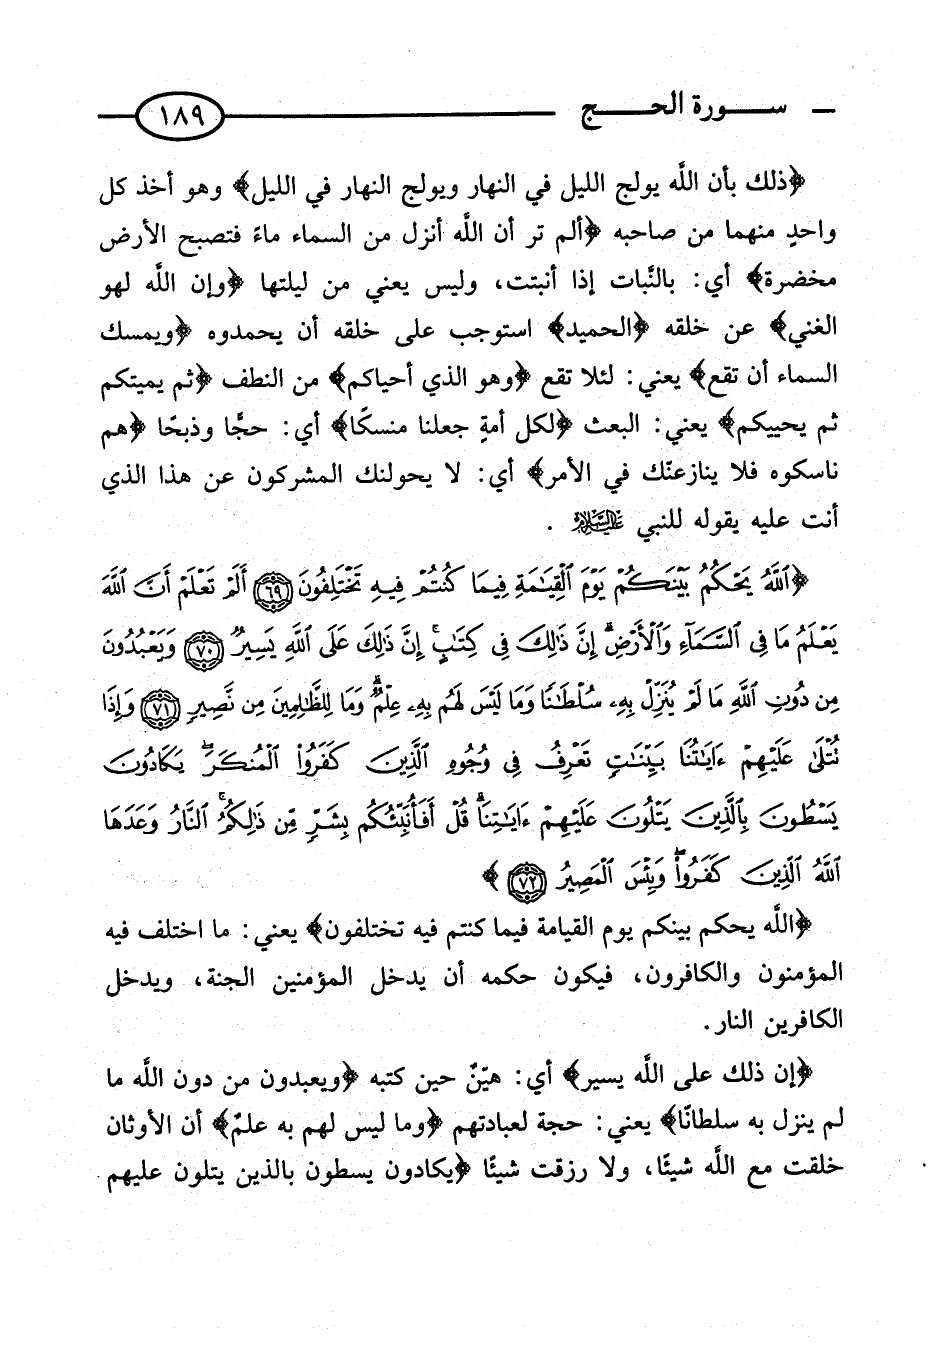 سورة الحج ١٨٩
﴿ذلك بأن اللَّه يولج الليل في النهار ويولج النهار في الليل﴾ وهو أخذ كل
واحدٍ منهما من صاحبه ﴿ألم تر أن اللَّه أنزل من السماء ماءً فتصبح الأرض
مخضرة﴾ أي: بالنَّبات إذا أنبتت، وليس يعني من ليلتها ﴿وإن اللَّه لهو
الغني﴾ عن خلقه ﴿الحميد﴾ استوجب على خلقه أن يحمدوه ﴿ويمسك
السماء أن تقع﴾ يعني: لئلا تقع ﴿وهو الذي أحياكم﴾ من النطف ﴿ثم يميتكم
ثم يحييكم﴾ يعني: البعث ﴿لكل أمةٍ جعلنا منسكًا﴾ أي: حجًّا وذبحًا ﴿هم
ناسكوه فلا ينازعنّك في الأمر﴾ أي: لا يحولنك المشركون عن هذا الذي
أنت عليه يقوله للنبي عليه السلام .
﴿ٱللَّهُ يَحْكُمُ بَيْنَكُمْ يَوْمَ ٱلْقِيَٰمَةِ فِيمَا كُنتُمْ فِيهِ تَخْتَلِفُونَ ٦٩ أَلَمْ تَعْلَمْ أَنَّ ٱللَّهَ
يَعْلَمُ مَا فِى ٱلسَّمَآءِ وَٱلْأَرْضِ ۗ إِنَّ ذَٰلِكَ فِى كِتَٰبٍ ۚ إِنَّ ذَٰلِكَ عَلَى ٱللَّهِ يَسِيرٌ ٧٠ وَيَعْبُدُونَ
مِن دُونِ ٱللَّهِ مَا لَمْ يُنَزِّلْ بِهِۦ سُلْطَٰنًا وَمَا لَيْسَ لَهُم بِهِۦ عِلْمٌ ۗ وَمَا لِلظَّٰلِمِينَ مِن نَّصِيرٍ ٧١ وَإِذَا
تُتْلَىٰ عَلَيْهِمْ ءَايَٰتُنَا بَيِّنَٰتٍ تَعْرِفُ فِى وُجُوهِ ٱلَّذِينَ كَفَرُوا۟ ٱلْمُنكَرَ ۖ يَكَادُونَ
يَسْطُونَ بِٱلَّذِينَ يَتْلُونَ عَلَيْهِمْ ءَايَٰتِنَا ۗ قُلْ أَفَأُنَبِّئُكُم بِشَرٍّ مِّن ذَٰلِكُمُ ۚ ٱلنَّارُ وَعَدَهَا
ٱللَّهُ ٱلَّذِينَ كَفَرُوا۟ ۖ وَبِئْسَ ٱلْمَصِيرُ ٧٢ ﴾
﴿اللَّه يحكم بينكم يوم القيامة فيما كنتم فيه تختلفون﴾ يعني: ما اختلف فيه
المؤمنون والكافرون، فيكون حكمه أن يدخل المؤمنين الجنة، ويدخل
الكافرين النار.
﴿إن ذلك على اللَّه يسير﴾ أي: هيّنٌ حين كتبه ﴿ويعبدون من دون اللَّه ما
لم ينزل به سلطانًا﴾ يعني: حجة لعبادتهم ﴿وما ليس لهم به علمٌ﴾ أن الأوثان
خلقت مع اللَّه شيئًا، ولا رزقت شيئًا ﴿يكادون يسطون بالذين يتلون عليهم